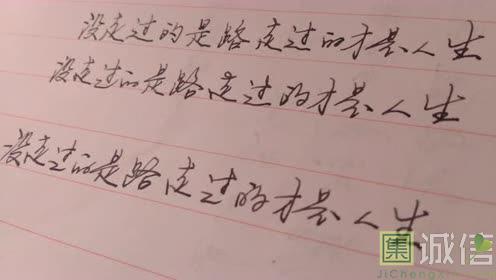 没走过的是路走过的才是人生
没走过的是路走过的才是人生
没走过的是路走过的才是人生
集诚信
JiChengxin